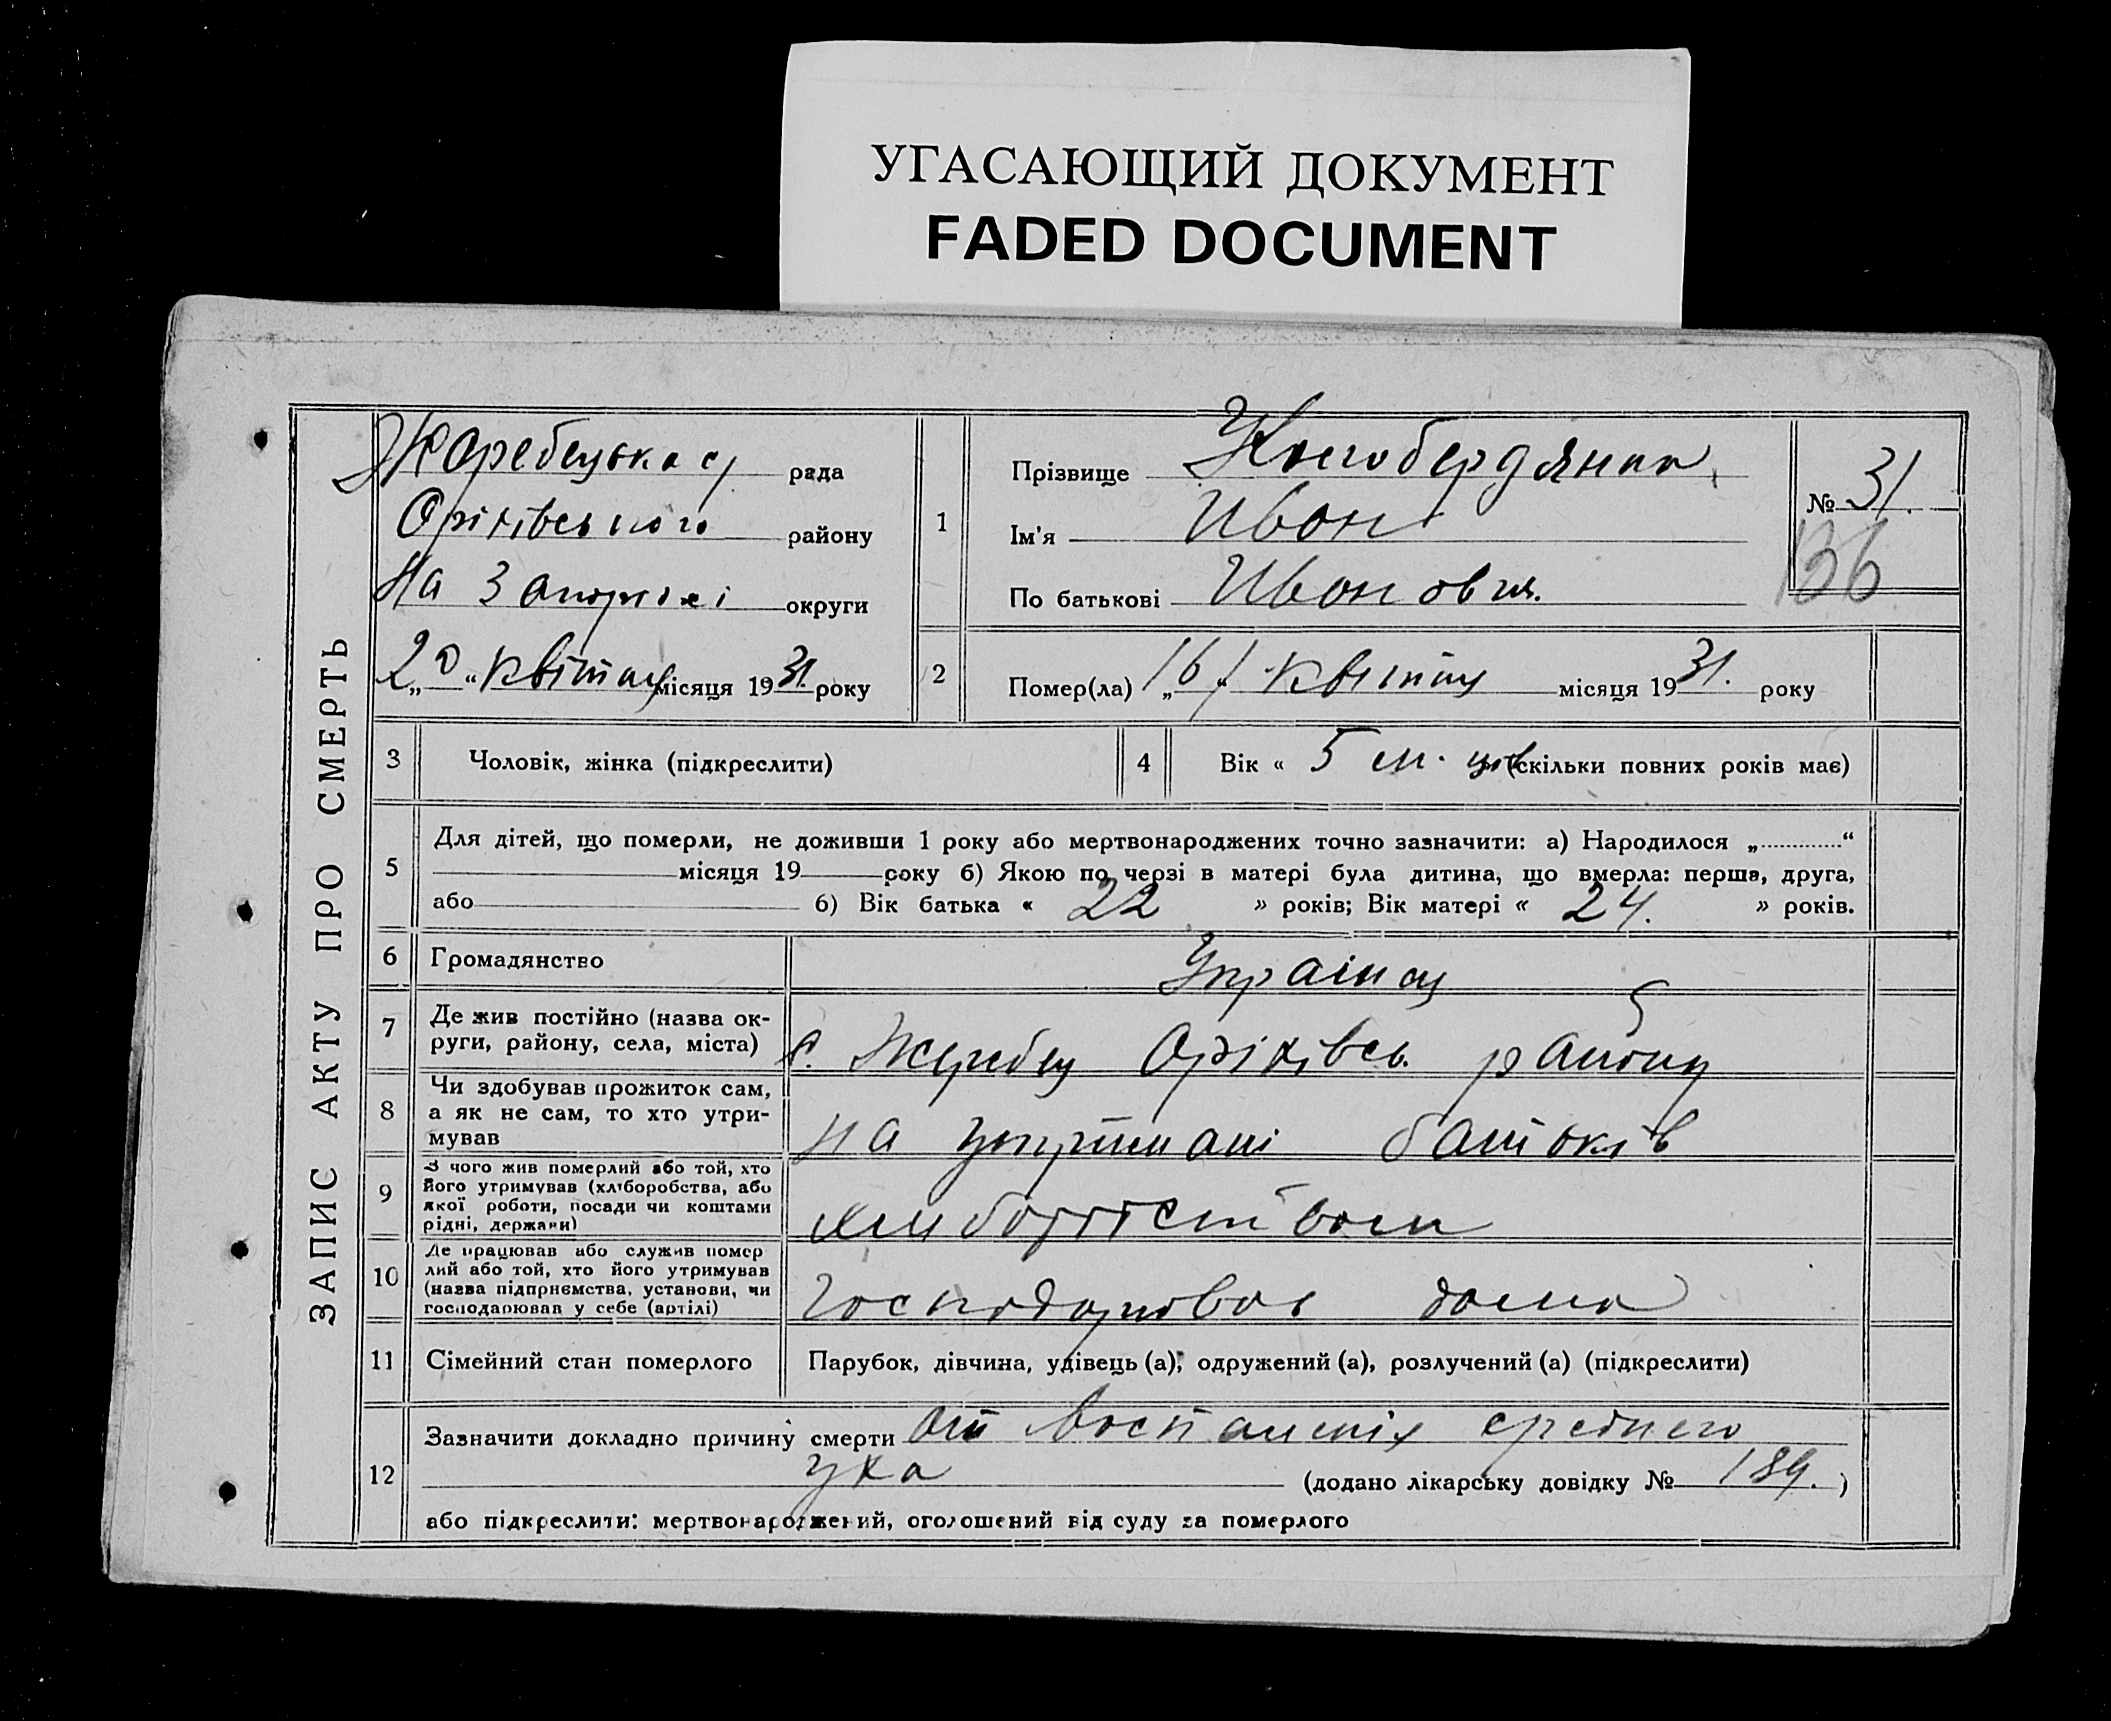 УГАСАЮЩИЙ ДОКУМЕНТ
FADED DOCUMENT
ЗАПИС АКТУ ПРО СМЕРТЬ
Жеребецька рада
Оріхівського району
На Запоріжжі округи
„20“ квітня місяця 1931. року
1
Прізвище
Ім'я Иван
По батькові Иванович.
№ 31.
136
2
Помер(ла) „16“ квітня місяця 1931. року
3 Чоловік, жінка (підкреслити)
4 Вік « 5 м-ців (скільки повних років має)
5
Для дітей, що померли, не доживши 1 року або мертвонароджених точно зазначити: а) Народилося „.............“
місяця 19 року б) Якою по черзі в матері була дитина, що вмерла: перша, друга,
або б) Вік батька « 22 » років; Вік матері « 24. » років.
6 Громадянство Украінец
7
Де жив постійно (назва ок-
руги, району, села, міста)
с. Жеребец Оріхівсь. району
8
Чи здобував прожиток сам,
а як не сам, то хто утри-
мував
на утримані батьків
9
З чого жив померлий або той, хто
його утримував (хліборобства, або
якої роботи, посади чи коштами
рідні, держави)
10
Де працював або служив помер
лий або той, хто його утримував
(назва підприємства, установи, чи
господарював у себе (артілі)
господарював дома
11 Сімейний стан померлого Парубок, дівчина, удівець (а), одружений (а), розлучений (а) (підкреслити)
12
Зазначити докладно причину смерти от воспаления среднего
уха (додано лікарську довідку № 189. )
або підкреслити: мертвонароджений, оголошений від суду за померлого